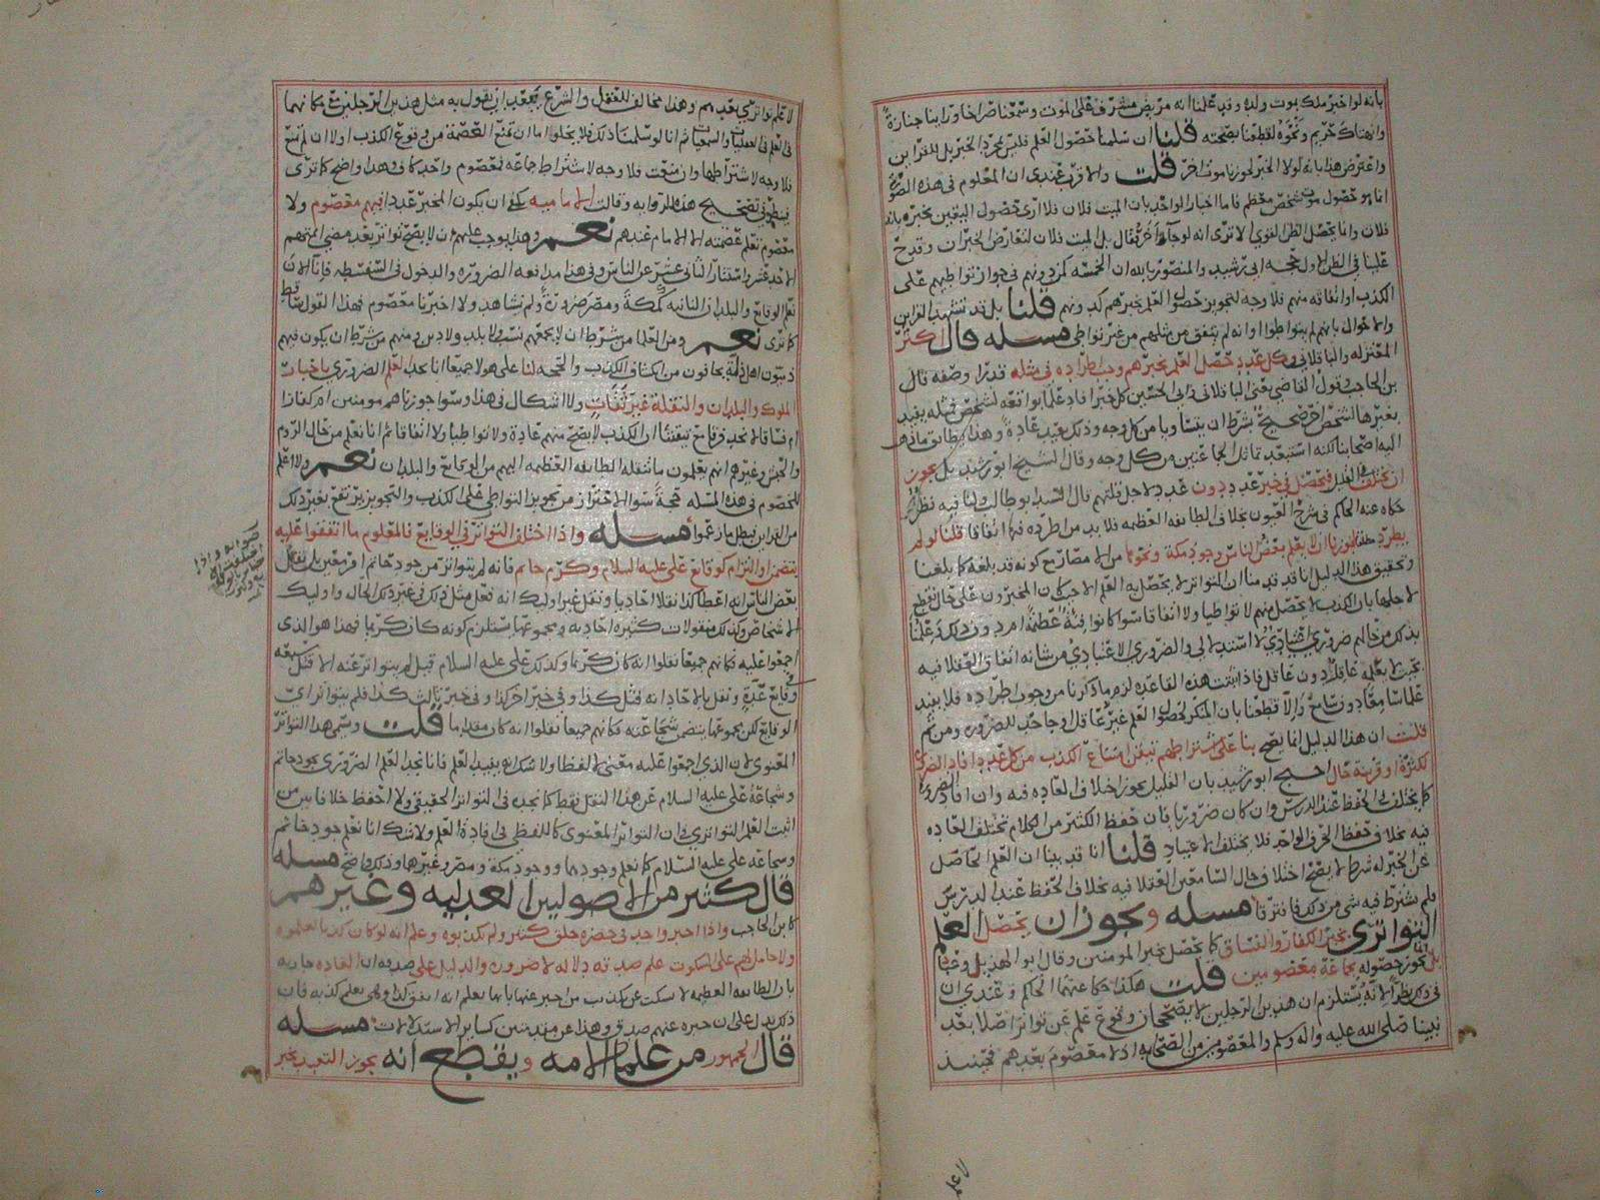 بانه لو اخبر ملك بموت ولده وقد علمنا انه مريض مشرف على الموت وسمعنا صراخا وراينا جنازة
وانهتاك حريم ونحوه لقطعنا بصحته قلنا ان سلمنا حصول العلم فليس لمجرد الخبر بل للقراين
واعترض هذا بانه لولا الخبر لجوزنا موت اخر قلت والاقرب عندي ان المعلوم في هذه الصورة
انما هو حصول موت شخص معظم فاما اخبار الواحد بان الميت فلان فلا ارى حصول اليقين بخبره بانه
فلان وانما يحصل الظن القوي الا ترى انه لو جا اخر فقال بل الميت فلان لتعارض الخبران وقدح
علينا في الظن الاول حجه ابي رشيد والمنصور بالله ان الخمسه كمن دونهم في جواز تواطيهم على
الكذب او اتفاقه منهم فلا وجه لتجويز حصول العلم بخبرهم كمن دونهم قلنا بل قد تشهد القراين
والاحوال بانهم لم يتواطوا او انه لم يتفق من مثلهم من غير تواطي مسله قال كثر
المعتزله والباقلاني وكل عدد حصل العلم بخبرهم وجب اطراده في مثله قدرا وصفه قال
بن الحاجب قول القاضي يعني الباقلاني وابي الحسين كل خبر افاد علما بواقعه لشخص فمثله يفيد
بغيرها لشخص اخر صحيح بشرط ان يتساويا من كل وجه وذلك بعيد عادة وهذا يطابق ما ذهب
اليه اصحابنا لكنه استبعد تماثل الجماعتين من كل وجه وقال الشيخ ابو رشيد بل يجوز
ان يختلف في القليل فيحصل في خبر عدد دون عدد لاجل قلتهم قال السيد ابو طالب ولنا فيه نظر
حكاه عنه الحاكم في شرح العيون بخلاف الطايفه العظيمه فلا بد من اطراده فيها اتفاقا قلنا لو لم
يطرد لجوزنا ان لا يعلم بعض الناس وجود مكة ونحوها من الامصار مع كونه قد بلغه كما بلغنا
وتحقيق هذا الدليل انا قد قدمنا ان التواتر لا يحصل به العلم الا حيث كان المخبرون على حال نقطع
لاجلها بان الكذب لا يحصل منهم لا تواطيا ولا اتفاقا سوا كانوا فئة عظيمة ام دون ذلك وعلمنا
بذلك من حالهم ضروري
تجب ان يعلمه عاقل دون عاقل فاذا ثبتت هذه القاعده لزم ما ذكرنا من وجوب اطراده فلا يفيد
علما سامعا دون سامع والا قطعنا بان المنكر لحصول العلم غير عاقل او جاحد للضروره ومن ثم
قلت ان هذا الدليل انما يصح بنا على اشتراطهم تيقن امتناع الكذب من كل عدد افاد الضروري
لكثرة او قرينة حال احتج ابو رشيد بان القليل يجوز خلاف العاده فيه وان افاد الضرورة
كما يختلف في الحفظ عند الدرس وان كان ضروريا فان حفظ الكثير من الكلام تختلف العاده
فيه بخلاف حفظ الحرف الواحد فلا يختلف الاعتياد قلنا انا قد بينا ان العلم الحاصل
عن الخبر له شرط لا يصح اختلاف حال السامعين العقلا فيه بخلاف الحفظ عند الدرس
فلم يشترط فيه شي من ذلك فافترقا مسله ويجوز ان يحصل العلم
التواتري بخبر الكفار والفساق كما يحصل بخبر المومنين وقال ابو الهذيل وعباد
بل يجوز حصوله بجماعة معصومين قلت هكذا حكا عنهما الحاكم وعندي ان
في ذلك نظرا لانه يستلزم ان هذين الرجلين لا يصححان وقوع علم عن تواتر اصلا بعد
نبينا صلى الله عليه واله وسلم والمعصومين من الصحابه اذ لا معصوم بعدهم فحينئذ
لا علم
لا علم تواتري بعدهم وهذا مخالف للعقل والشرع يبعد ان يقول به مثل هذين الرجلين مع مكانهما
في العلم في العقليات والسمعيات ثم انا لو سلمنا ذلك فلا يخلوا اما ان تمنع العصمة من وقوع الكذب اولا ان لم تمنع
فلا وجه لاشتراطها وان منعت فلا وجه لاشتراط جماعه لمعصوم واحد كاف وهذا واضح كما ترى
فينظر في تصحيح هذه الروايه وقالت الاماميه يكفي ان يكون المخبر عددا فيهم معصوم ولا
معصوم تعلم عصمته الا الامام عندهم نعم وهذا يوجب عليهم ان لا يصح تواتر بعد مضي ائمتهم
الاحد عشر واستتار الثاني عشر عن الناس وفي هذا مدافعه الضروره والدخول في السفسطه فانا الان
نعلم الوقايع والبلدان النائيه كمكة ومصر ضرورة ولم نشاهد ولا اخبرنا معصوم فهذا القول ساقط
كما ترى نعم ومن العلما من شرط ان لا يجمعهم نسب ولا بلد ولا دين ومنهم من شرط ان يكون فيهم
ذميون اهل ذلة يخافون من اكتشاف الكذب والحجه لنا على هولا جميعا انا نجد العلم الضروري باخبار
الملوك والبلدان والنقلة غير ثقات ولا اشكال في هذا وسوا جوزناهم مومنين ام كفارا
ام فساقا لانه لا بحد وقايع تيقنا ان الكذب لا يصح منهم عادة لا تواطيا ولا اتفاقا ثم انا نعلم من حال الروم
والحبش وغيرهم انهم يعلمون ما تنقله الطائفه العظيمه اليهم من الوقايع والبلدان نعم ولا اعلم
للخصوم في هذه المسله حجة سوا الاحتراز من تجويز التواطي على الكذب والتجويز يرتفع بغير ذلك
من القراين فبطل ما زعموا مسله واذا اختلف التواتر في الوقايع فالمعلوم ما اتفقوا عليه
بتضمن او التزام كوقايع علي عليه السلام وكرم حاتم فانه لم يتواتر من جود حاتم امر معين بل نقل
بعض الناس انه اعطا كذا نقلا احاديا ونقل غير اوليك انه فعل مثل ذلك في غير ذلك الحال واوليك
الاشخاص وكذلك منقولات كثيره احاديه ومجموعها يستلزم كونه كان كريما فهذا هو الذي
اجمعوا عليه فكانهم جميعا نقلوا انه كان كريما وكذلك علي عليه السلام قيل لم يتواتر عنه الا قتل سبعه
وقايع عدة ونقل بالاحاد انه قتل كذا وفي خبر اخر كذا وفي خبر ثالث كذا فلم يتواتر اي
الوقايع لكن مجموعها يتضمن شجاعته فكانهم جميعا نقلوا انه كان مقداما قلت وسمى هذا التواتر
المعنوي لان الذي اجمعوا عليه معنى لا لفظا ولا شك انه يفيد العلم فانا نجد العلم الضروري بجود حاتم
وشجاعة علي عليه السلام عن هذا النقل فقط كما نجده في التواتر الحقيقي ولا احفظ خلافا بين من
اثبت العلم التواتري في ان التواتر المعنوي كاللفظي في افادة العلم ولا شك انا نعلم جود حاتم
وشجاعه علي عليه السلام كما نعلم وجودهما ووجود مكة ومصر وغيرها وذلك واضح مسله
قال كثير من الاصوليين العدليه وغيرهم
كابن الحاجب واذا اخبر واحد في حضرة خلق كثير ولم يكذبوه وعلم انه لو كان كذبا لعلموه
ولا حامل لهم على السكوت علم صدقه دلاله لا ضروره والدليل على صدقه ان العاده جاريه
بان الطائفه العظيمه لا تسكت عن تكذيب من اخبر عنها بما يعلم انه اتفق كذا وهي تعلم كذبه فان
ذلك يدل على ان خبره عنهم صدق وهذا عن مقدمتين كساير الاستدلالات مسله
قال الجمهور من علما الامه ويقطع انه يجوز التعبد بخبر